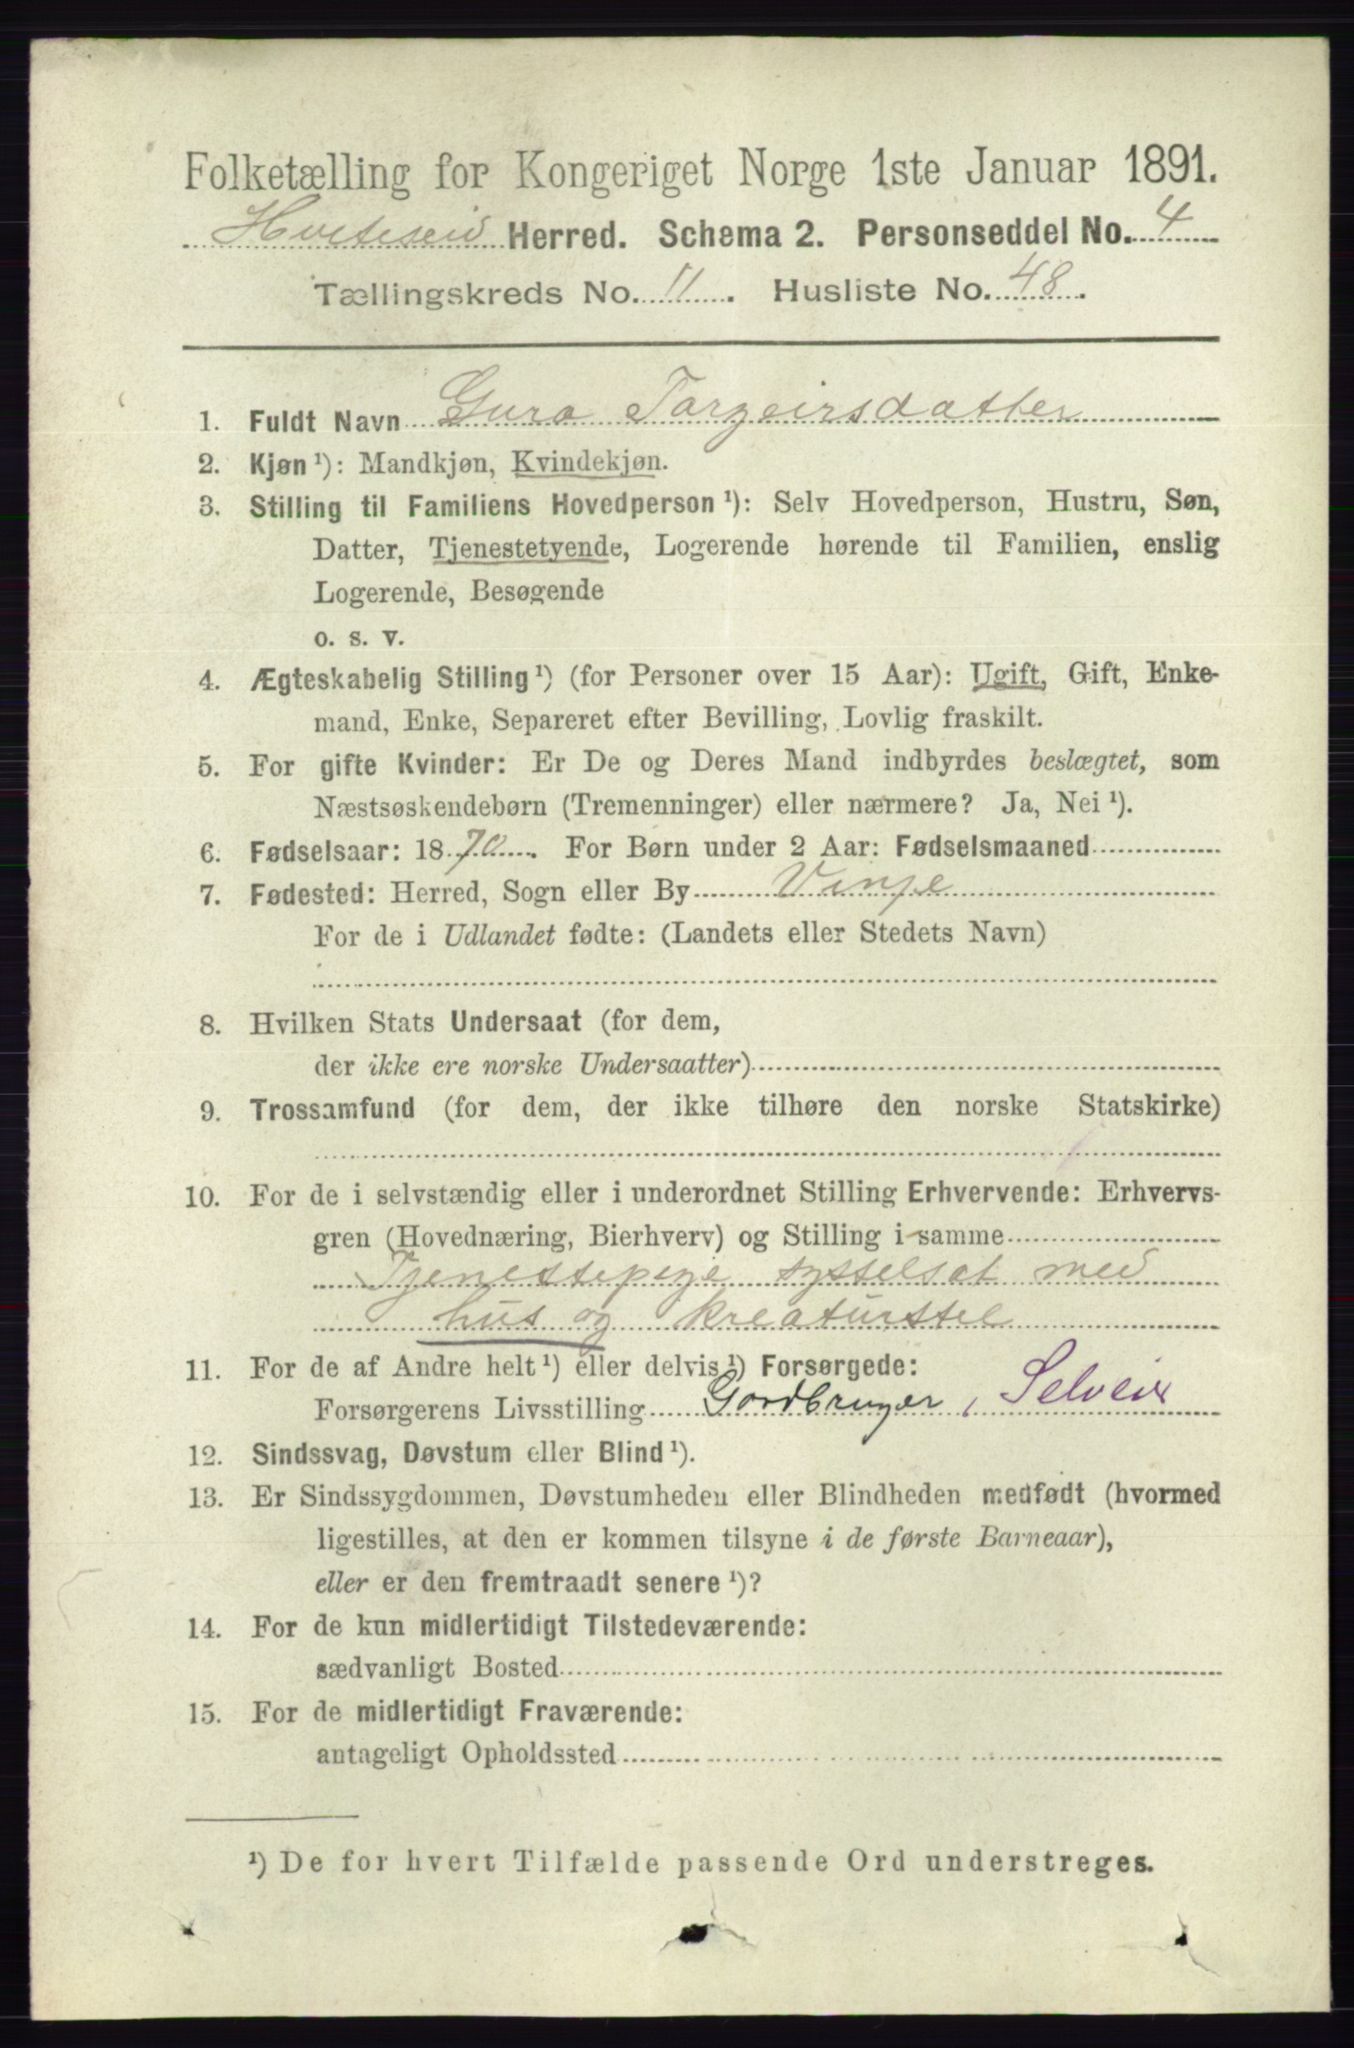 Folketælling for Kongeriget Norge 1ste Januar 1891.
Hviteseid Herred. Schema 2. Personseddel No. 4
Tællingskreds No. 11. Husliste No. 48.
1. Fuldt Navn Guro Targeirsdatter
2. Kjøn ¹): Mandkjøn, Kvindekjøn.
3. Stilling til Familiens Hovedperson ¹): Selv Hovedperson, Hustru, Søn,
Datter, Tjenestetyende, Logerende hørende til Familien, enslig
Logerende, Besøgende
o. s. v.
4. Ægteskabelig Stilling ¹) (for Personer over 15 Aar): Ugift, Gift, Enke-
mand, Enke, Separeret efter Bevilling, Lovlig fraskilt.
5. For gifte Kvinder: Er De og Deres Mand indbyrdes beslægtet, som
Næstsøskendebørn (Tremenninger) eller nærmere? Ja, Nei ¹).
6. Fødselsaar: 1870. For Børn under 2 Aar: Fødselsmaaned
7. Fødested: Herred, Sogn eller By Vinje
For de i Udlandet fødte: (Landets eller Stedets Navn)
8. Hvilken Stats Undersaat (for dem,
der ikke ere norske Undersaatter)
9. Trossamfund (for dem, der ikke tilhøre den norske Statskirke)
10. For de i selvstændig eller i underordnet Stilling Erhvervende: Erhvervs-
gren (Hovednæring, Bierhverv) og Stilling i samme
Tjenestepige sysselsat med
hus og kreaturstel
11. For de af Andre helt ¹) eller delvis ¹) Forsørgede:
Forsørgerens Livsstilling Gordbruger, Selveier
12. Sindssvag, Døvstum eller Blind ¹).
13. Er Sindssygdommen, Døvstumheden eller Blindheden medfødt (hvormed
ligestilles, at den er kommen tilsyne i de første Barneaar),
eller er den fremtraadt senere ¹)?
14. For de kun midlertidigt Tilstedeværende:
sædvanligt Bosted
15. For de midlertidigt Fraværende:
antageligt Opholdssted
¹) De for hvert Tilfælde passende Ord understreges.